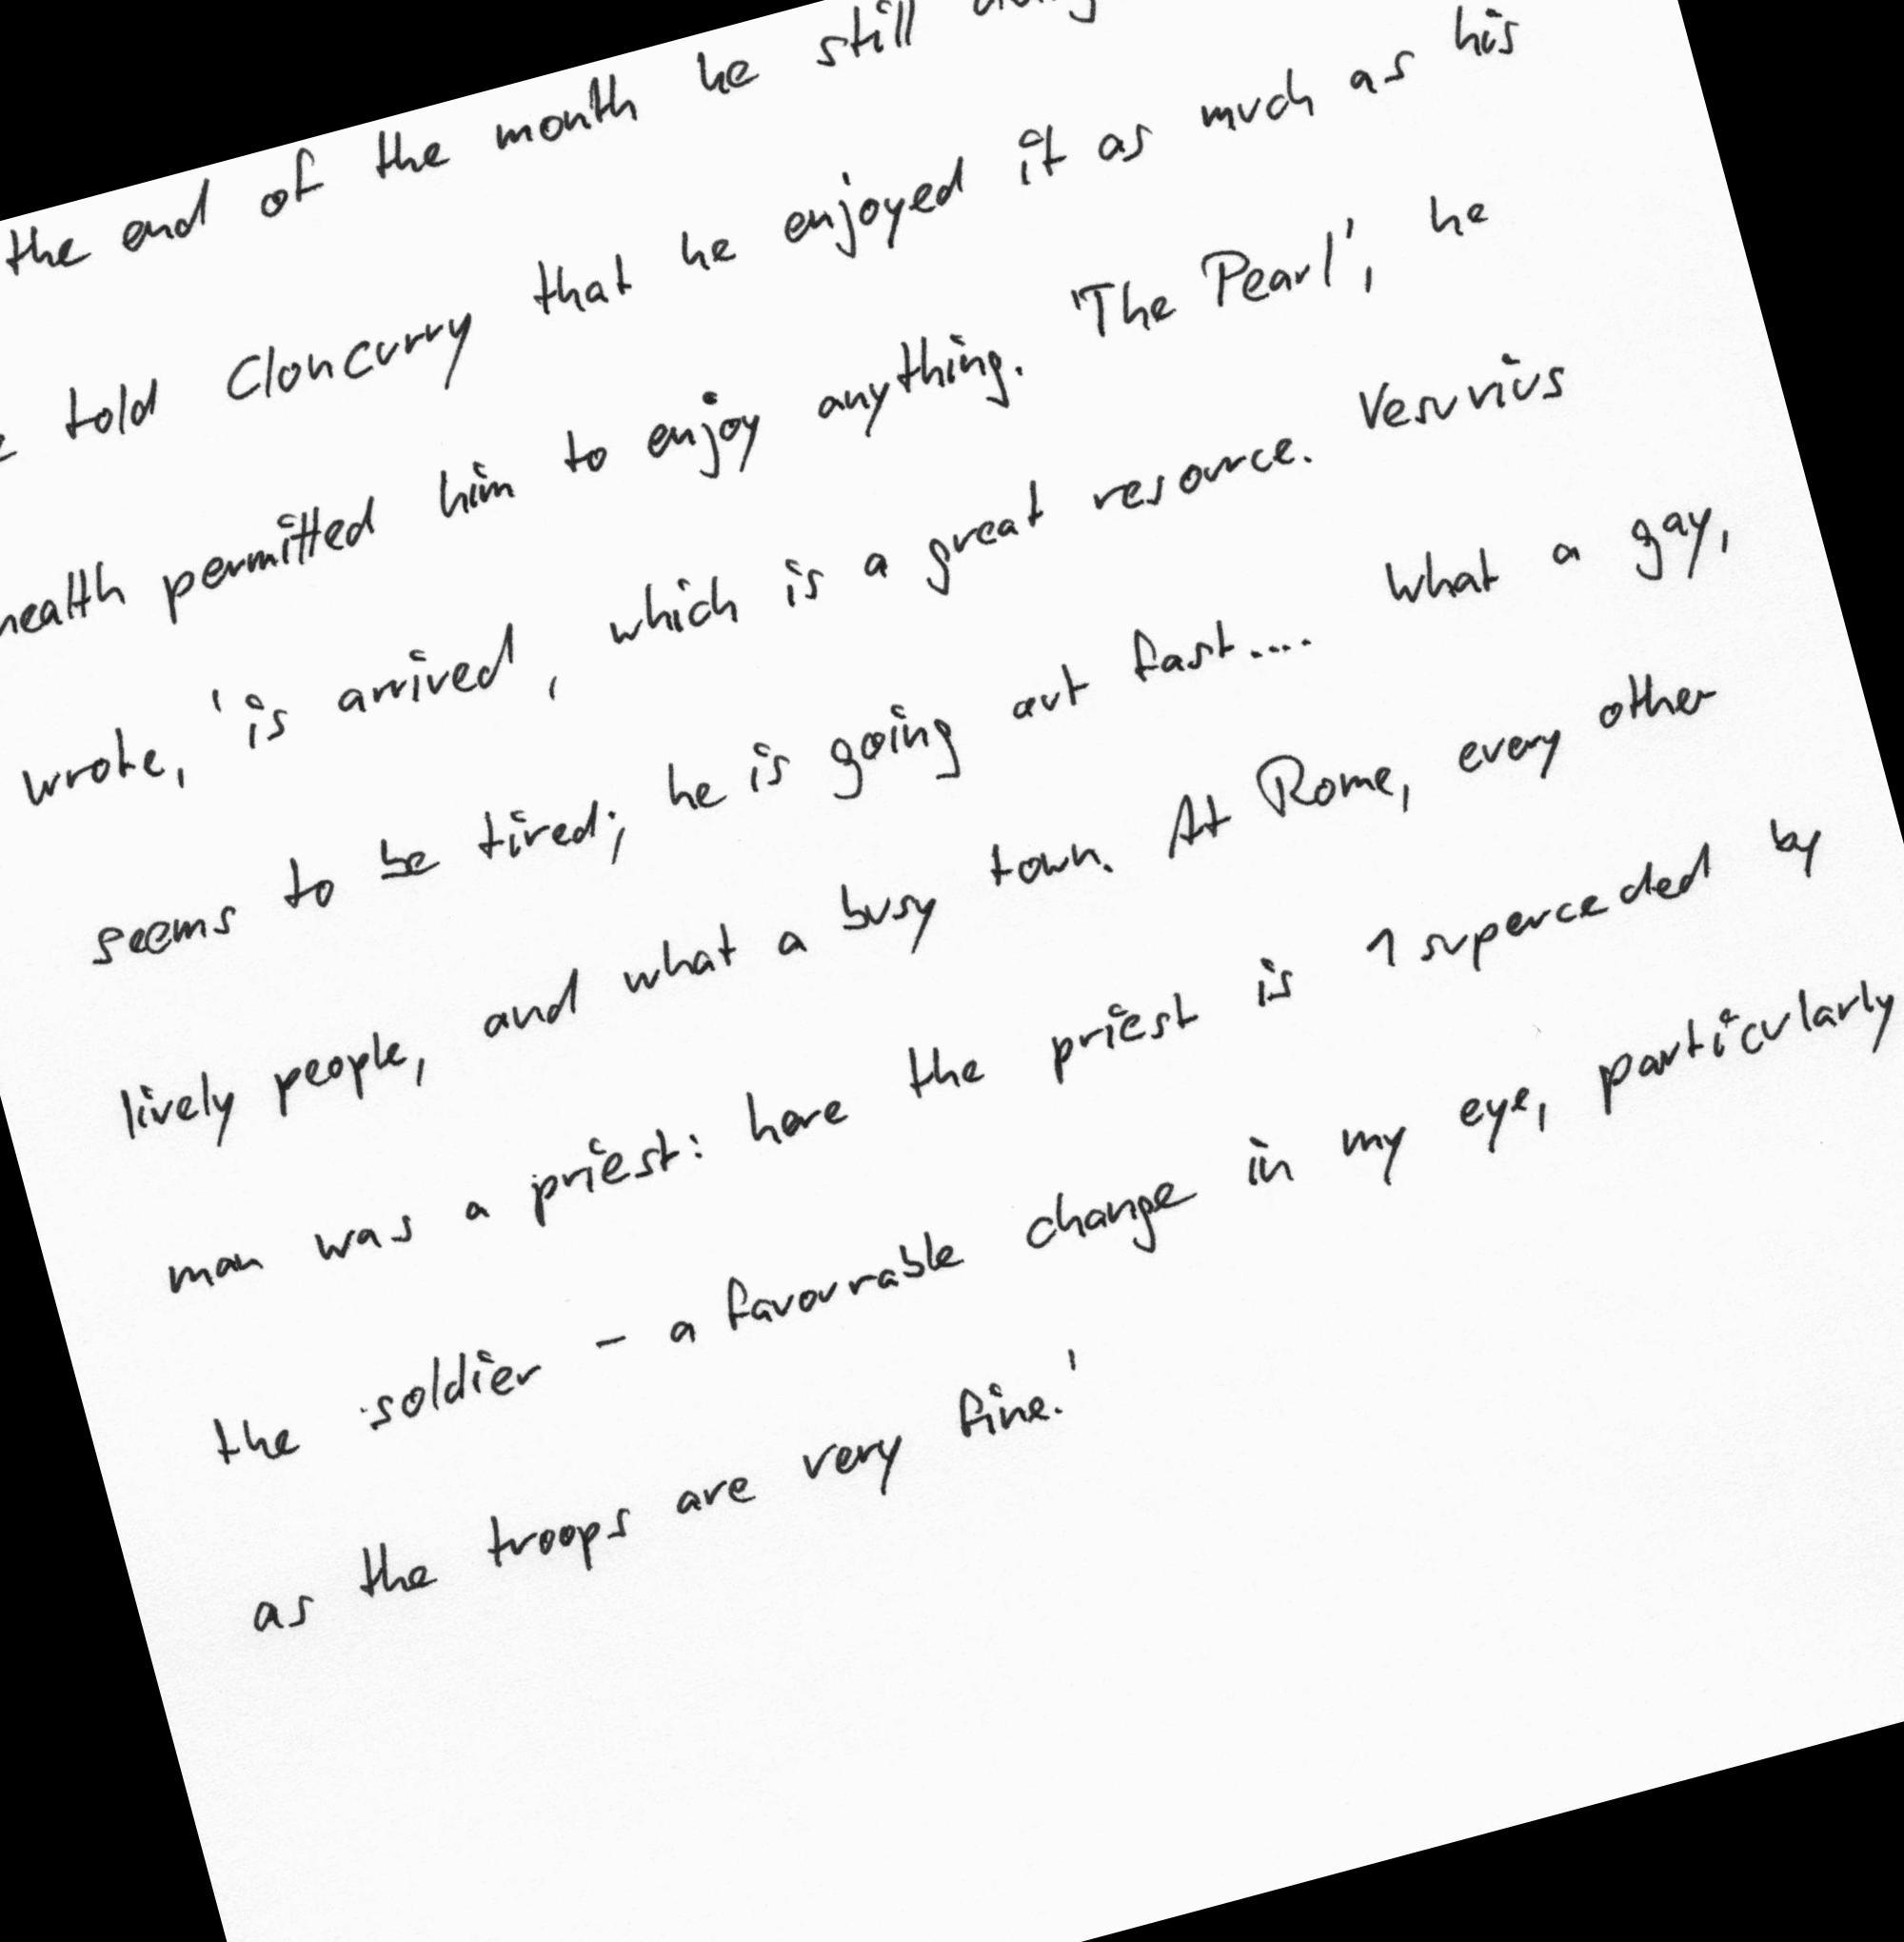 the end of the month he still
told Cloncurry that he enjoyed it as much as his
health permitted him to enjoy anything. 'The Pearl', he
wrote, 'is arrived, which is a great resource. Vesuvius
seems to be tired; he is going out fast.... What a gay,
lively people, and what a busy town. At Rome, every other
man was a priest: here the priest is superceded by
the soldier - a favourable change in my eye, particularly
as the troops are very fine.'